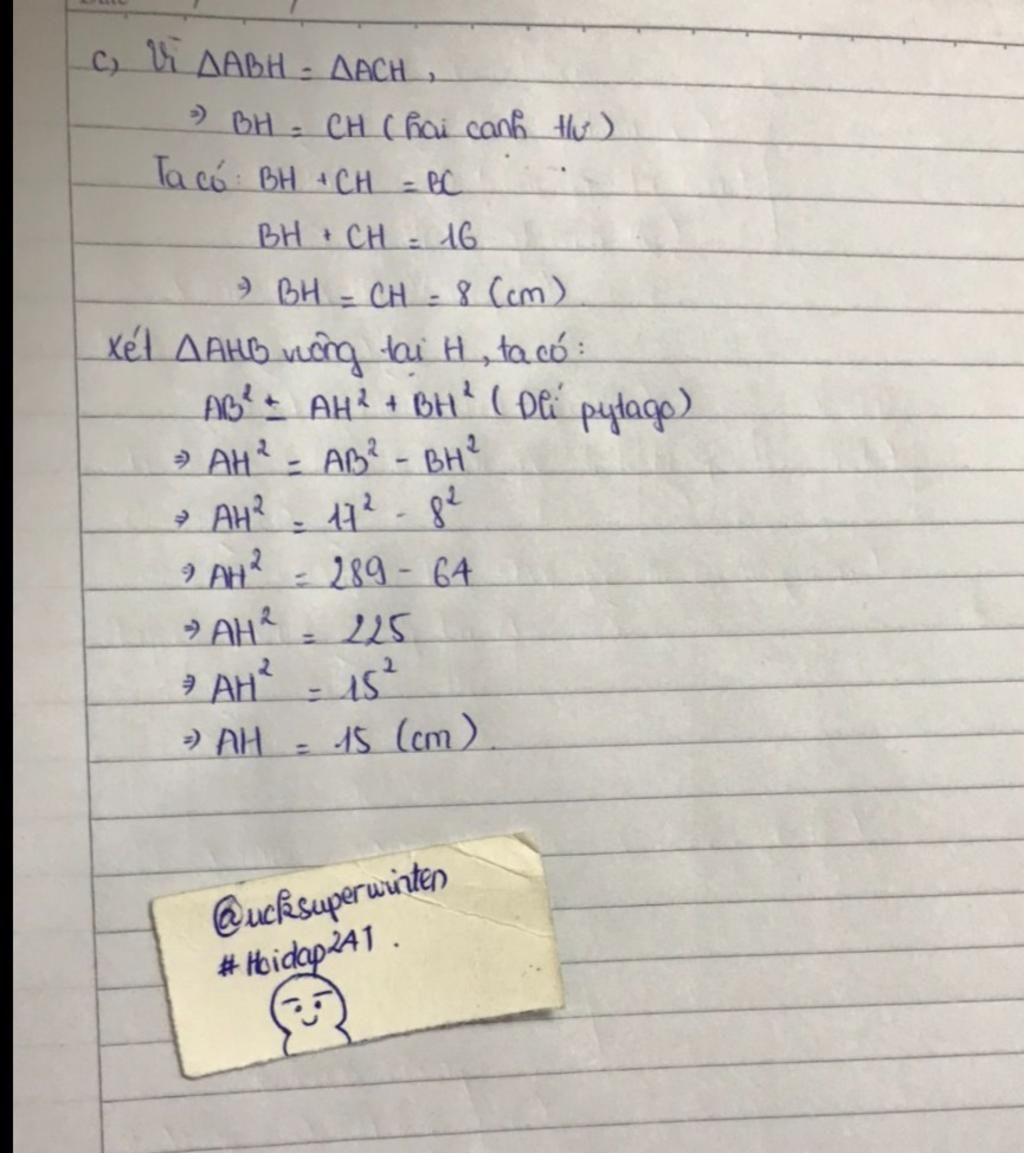 c, Vì ΔABH = ΔACH,
⇒ BH = CH (hai canh tlư)
Ta có: BH + CH = BC
BH + CH = 16
⇒ BH = CH = 8 (cm)
Xét ΔAHB vuông tại H, ta có:
AB² = AH² + BH² (Đlí pytago)
⇒ AH² = AB² - BH²
⇒ AH² = 17² - 8²
⇒ AH² = 289 - 64
⇒ AH² = 225
⇒ AH² = 15²
⇒ AH = 15 (cm).
#Hoidap247.